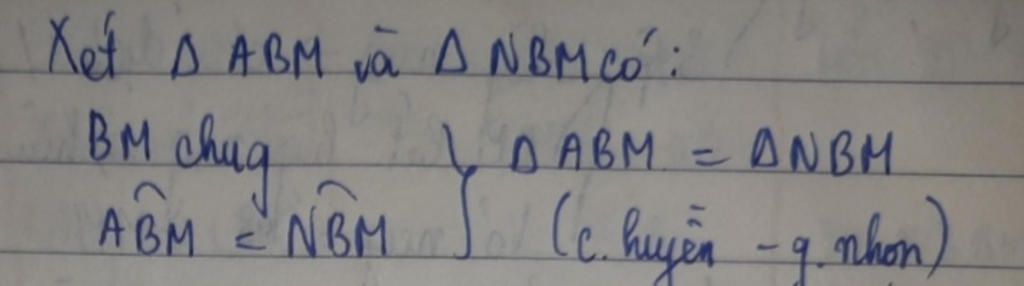 Xét Δ ABM và Δ NBM có:
BM chug } Δ ABM = Δ NBM
ABM̂ = NBM̂ (c. huyền - g. nhọn)